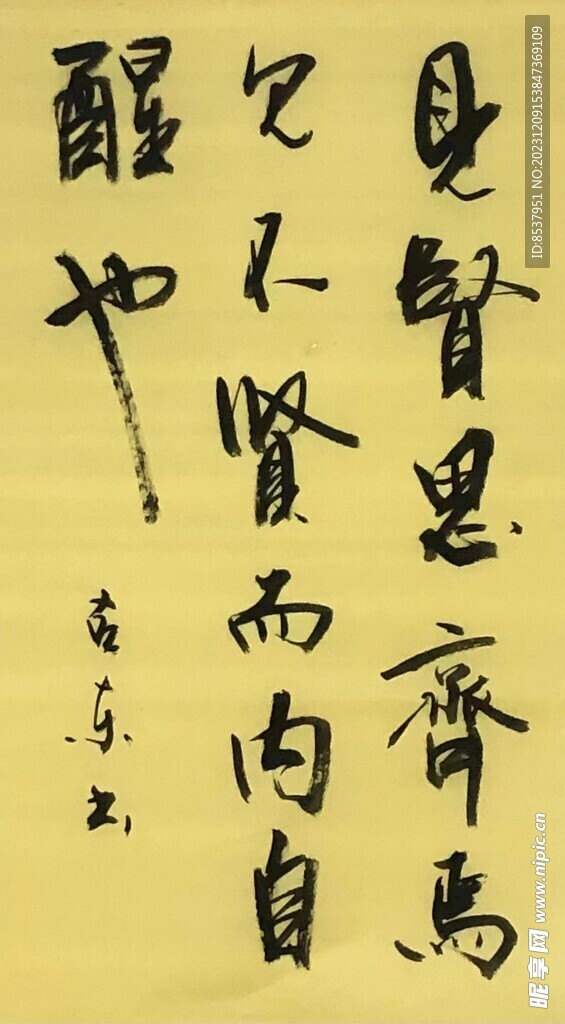 見賢思齊焉
見不賢而内自
醒也
古东书
ID:8537951 NO:20231209153847369109
昵享网 www.nipic.cn